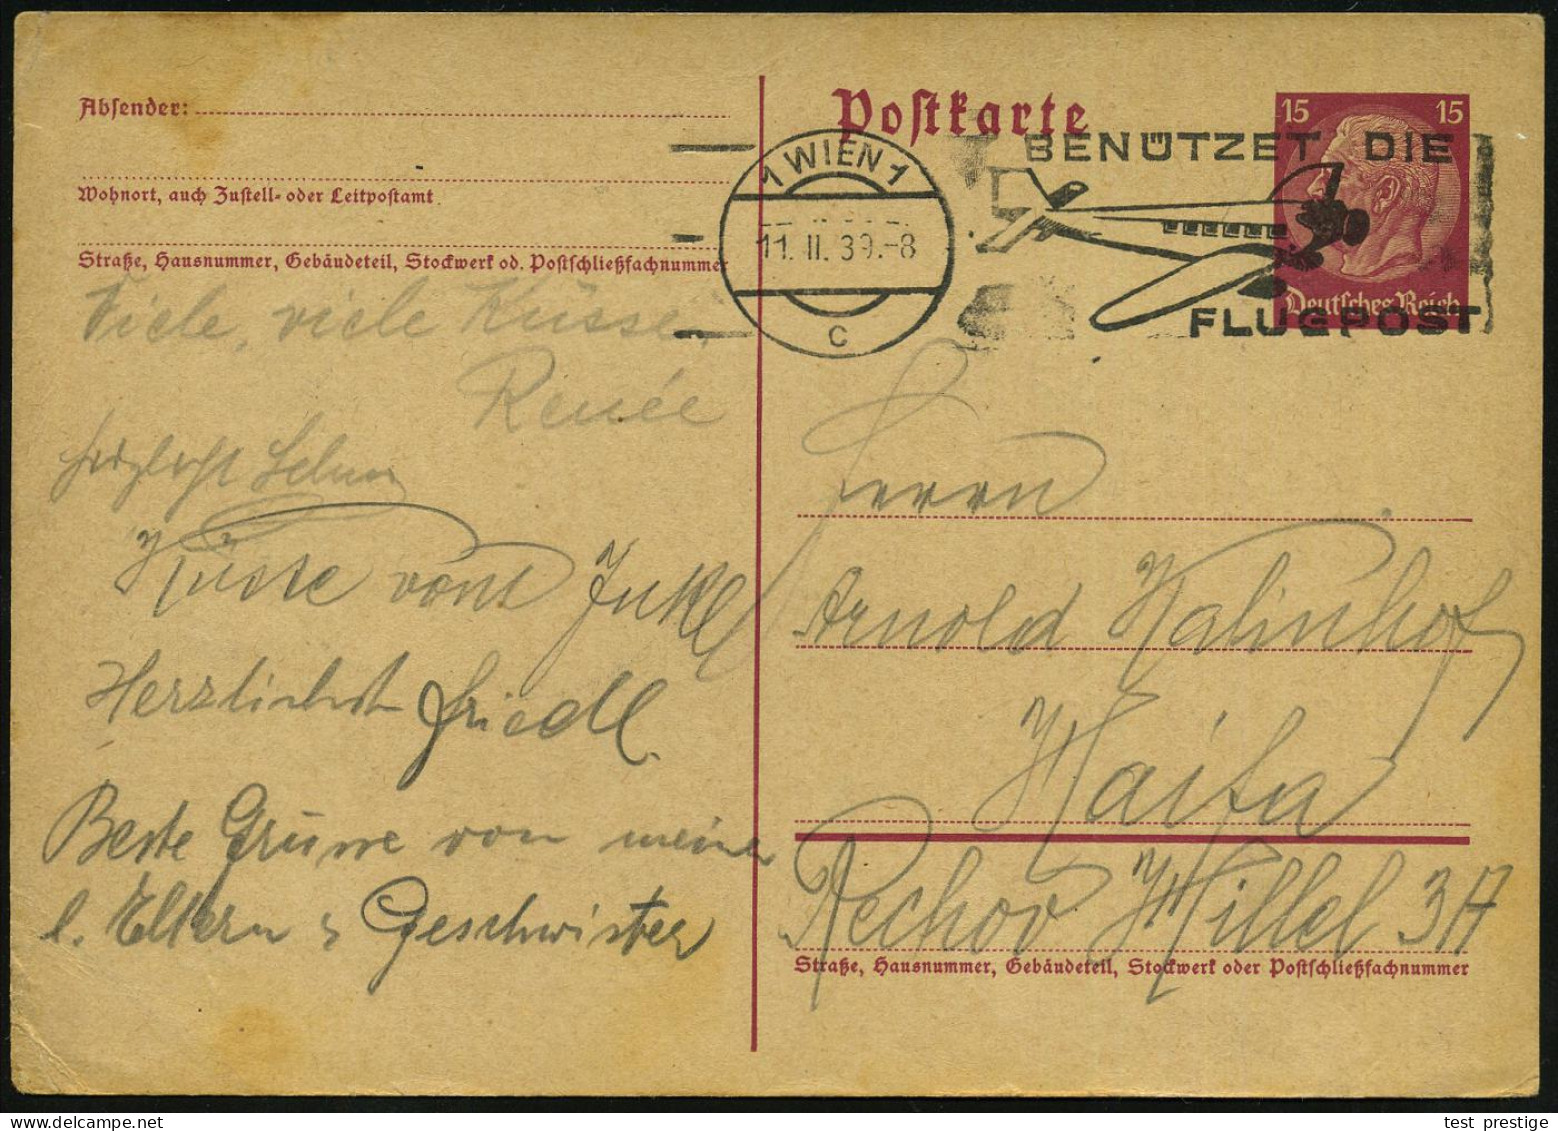 Absender:
Wohnort, auch Zustell- oder Leitpostamt
Straße, Hausnummer, Gebäudeteil, Stockwerk od. Postschließfachnummer
Viele, viele Küsse,
Renée
herzlichst
Küsse vom
Herzlichst Friedl.
Beste Grüsse von meinen
l. Eltern & Geschwister
Postkarte
1 WIEN 1
11. II. 39.-8
c
BENÜTZET DIE
FLUGPOST
15 15
Deutsches Reich
Herrn
Arnold Kalinhof
Haifa
Rechov Hillel 3A
Straße, Hausnummer, Gebäudeteil, Stockwerk oder Postschließfachnummer
test prestige